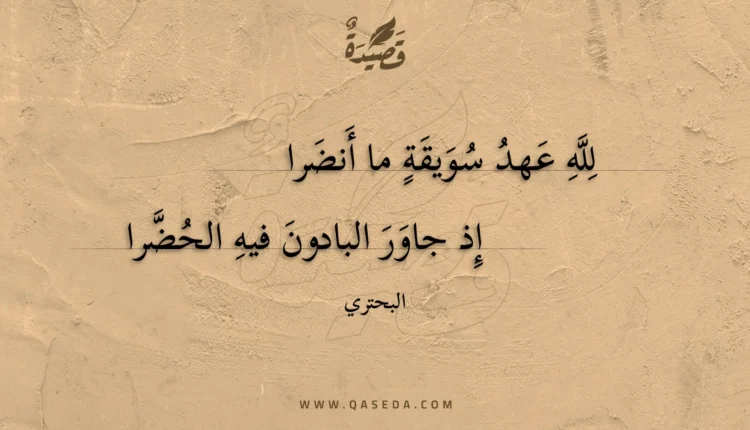 قَصِيدَةٌ
لِلَّهِ عَهدُ سُوَيقَةٍ ما أَنضَرا
إِذ جاوَرَ البادونَ فيهِ الحُضَّرا
البحتري
WWW.QASEDA.COM